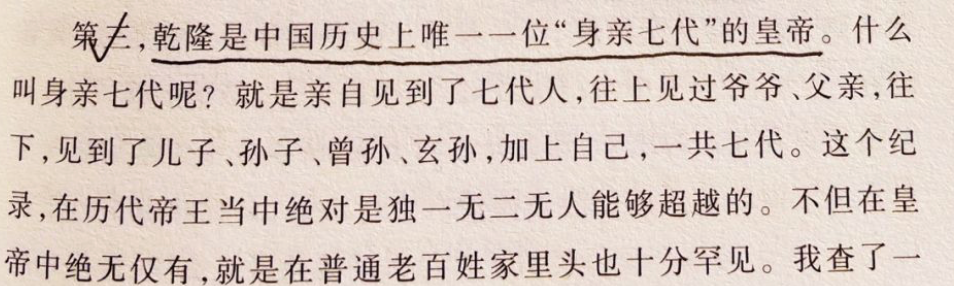 第三,乾隆是中国历史上唯一一位“身亲七代”的皇帝。什么
叫身亲七代呢？就是亲自见到了七代人,往上见过爷爷、父亲,往
下,见到了儿子、孙子、曾孙、玄孙,加上自己,一共七代。这个纪
录,在历代帝王当中绝对是独一无二无人能够超越的。不但在皇
帝中绝无仅有,就是在普通老百姓家里头也十分罕见。我查了一